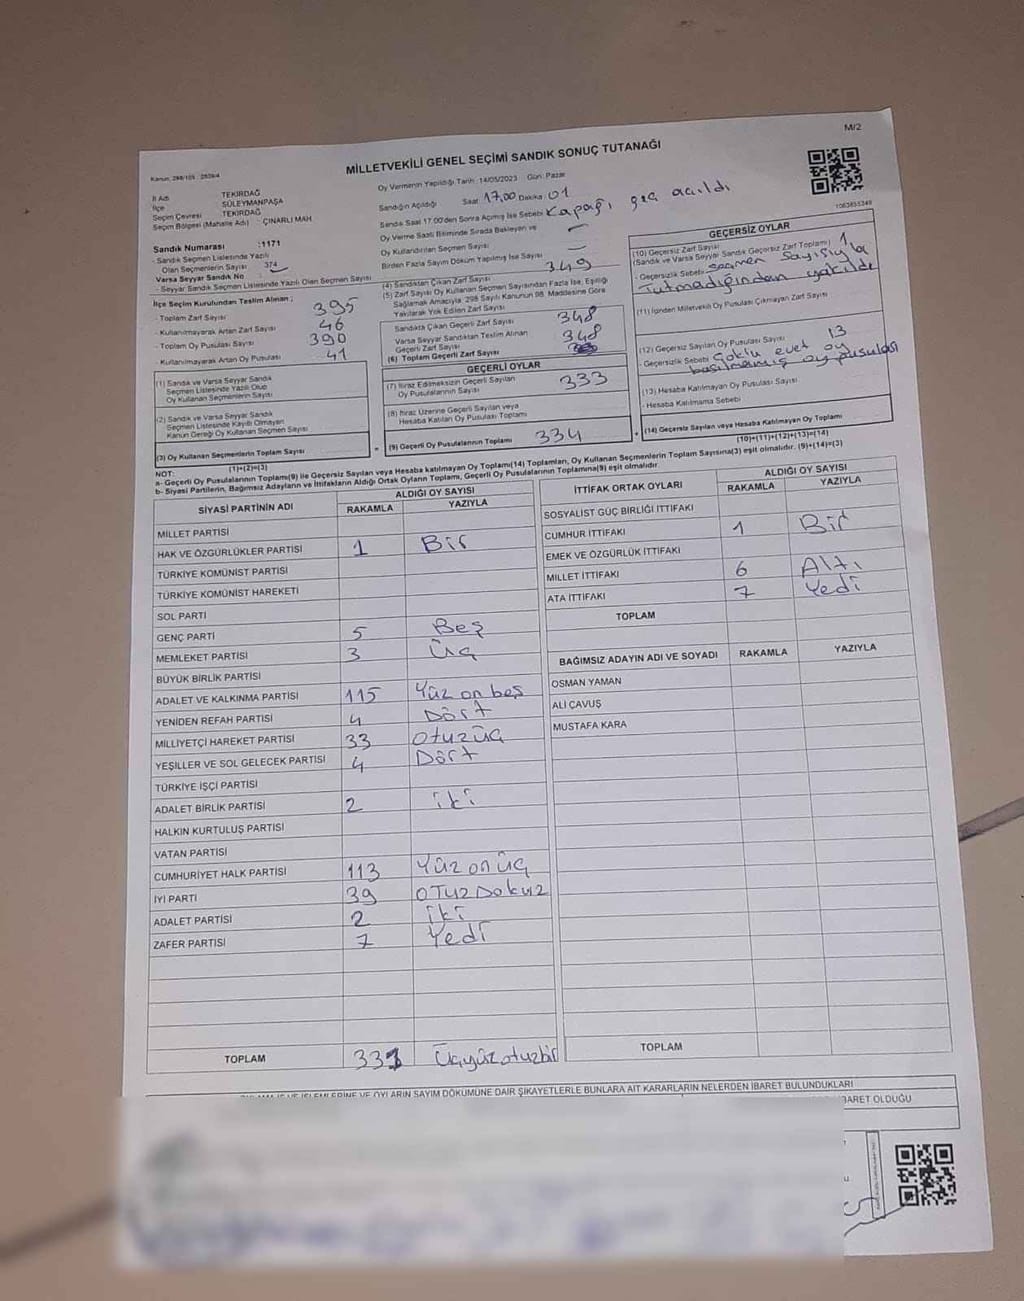 M/2
MİLLETVEKİLİ GENEL SEÇİMİ SANDIK SONUÇ TUTANAĞI
Kanun: 298/105
İl Adı TEKİRDAĞ
İlçe SÜLEYMANPAŞA
Seçim Çevresi TEKİRDAĞ
Seçim Bölgesi (Mahalle Adı) - ÇINARLI MAH
Sandık Numarası :1171
- Sandık Seçmen Listesinde Yazılı
Olan Seçmenlerin Sayısı 374
Varsa Seyyar Sandık No
- Seyyar Sandık Seçmen Listesinde Yazılı Olan Seçmen Sayısı
İlçe Seçim Kurulundan Teslim Alınan ;
- Toplam Zarf Sayısı 395
- Kullanılmayarak Artan Zarf Sayısı 46
- Toplam Oy Pusulası Sayısı 390
- Kullanılmayarak Artan Oy Pusulası 41
(1) Sandık ve Varsa Seyyar Sandık
Seçmen Listesinde Yazılı Olup
Oy Kullanan Seçmenlerin Sayısı
(2) Sandık ve Varsa Seyyar Sandık
Seçmen Listesinde Kaydı Olmayan
Kanun Gereği Oy Kullanan Seçmen Sayısı
(3) Oy Kullanan Seçmenlerin Toplam Sayısı
(1)+(2)=(3)
Oy Vermenin Yapıldığı Tarih : 14/05/2023 Gün: Pazar
Sandığın Açıldığı Saat 17,00 Dakika 01
Sandık Saat 17:00'den Sonra Açılmış İse Sebebi Kapağı geç açıldı
Oy Verme Saati Bitiminde Sırada Bekleyen ve
Oy Kullandırılan Seçmen Sayısı
Birden Fazla Sayım Döküm Yapılmış İse Sayısı
(4) Sandıktan Çıkan Zarf Sayısı 349
(5) Zarf Sayısı Oy Kullanan Seçmen Sayısından Fazla İse, Eşitliği
Sağlamak Amacıyla, 298 Sayılı Kanunun 98. Maddesine Göre
Yakılarak Yok Edilen Zarf Sayısı
Sandıkta Çıkan Geçerli Zarf Sayısı 348
Varsa Seyyar Sandıktan Teslim Alınan
Geçerli Zarf Sayısı 348
(6) Toplam Geçerli Zarf Sayısı
GEÇERLİ OYLAR
(7) İtiraz Edilmeksizin Geçerli Sayılan
Oy Pusulalarının Sayısı 333
(8) İtiraz Üzerine Geçerli Sayılan veya
Hesaba Katılan Oy Pusulası Toplamı
(9) Geçerli Oy Pusulalarının Toplamı 334
1063855349
GEÇERSİZ OYLAR
(10) Geçersiz Zarf Sayısı
(Sandık ve Varsa Seyyar Sandık Geçersiz Zarf Toplamı) 1
- Geçersizlik Sebebi seçmen sayısıyla
Tutmadığından yakıldı
(11) İçinden Milletvekili Oy Pusulası Çıkmayan Zarf Sayısı
(12) Geçersiz Sayılan Oy Pusulası Sayısı 13
- Geçersizlik Sebebi Çoklu evet oy
basılmamış oy pusulası
(13) Hesaba Katılmayan Oy Pusulası Sayısı
- Hesaba Katılmama Sebebi
(14) Geçersiz Sayılan veya Hesaba Katılmayan Oy Toplamı
(10)+(11)+(12)+(13)=(14)
NOT:
a- Geçerli Oy Pusulalarının Toplamı(9) ile Geçersiz Sayılan veya Hesaba katılmayan Oy Toplamı(14) Toplamları, Oy Kullanan Seçmenlerin Toplam Sayısına(3) eşit olmalıdır. (9)+(14)=(3)
b- Siyasi Partilerin, Bağımsız Adayların ve İttifakların Aldığı Ortak Oyların Toplamı, Geçerli Oy Pusulalarının Toplamına(9) eşit olmalıdır.
SİYASİ PARTİNİN ADI ALDIĞI OY SAYISI
RAKAMLA YAZIYLA
MİLLET PARTİSİ
HAK VE ÖZGÜRLÜKLER PARTİSİ 1 Bir
TÜRKİYE KOMÜNİST PARTİSİ
TÜRKİYE KOMÜNİST HAREKETİ
SOL PARTİ
GENÇ PARTİ 5 Beş
MEMLEKET PARTİSİ 3 Üç
BÜYÜK BİRLİK PARTİSİ
ADALET VE KALKINMA PARTİSİ 115 Yüz on beş
YENİDEN REFAH PARTİSİ 4 Dört
MİLLİYETÇİ HAREKET PARTİSİ 33 otuzüç
YEŞİLLER VE SOL GELECEK PARTİSİ 4 Dört
TÜRKİYE İŞÇİ PARTİSİ
ADALET BİRLİK PARTİSİ 2 iki
HALKIN KURTULUŞ PARTİSİ
VATAN PARTİSİ
CUMHURİYET HALK PARTİSİ 113 Yüz on üç
İYİ PARTİ 39 OTUZ DOKUZ
ADALET PARTİSİ 2 iki
ZAFER PARTİSİ 7 Yedi
TOPLAM 331 Üçyüzotuzbir
İTTİFAK ORTAK OYLARI ALDIĞI OY SAYISI
RAKAMLA YAZIYLA
SOSYALİST GÜÇ BİRLİĞİ İTTİFAKI
CUMHUR İTTİFAKI 1 Bir
EMEK VE ÖZGÜRLÜK İTTİFAKI
MİLLET İTTİFAKI 6 Altı
ATA İTTİFAKI 7 Yedi
TOPLAM
BAĞIMSIZ ADAYIN ADI VE SOYADI RAKAMLA YAZIYLA
OSMAN YAMAN
ALİ ÇAVUŞ
MUSTAFA KARA
TOPLAM
VE OYLARIN SAYIM DÖKÜMÜNE DAİR ŞİKAYETLERLE BUNLARA AİT KARARLARIN NELERDEN İBARET BULUNDUKLARI
İBARET OLDUĞU